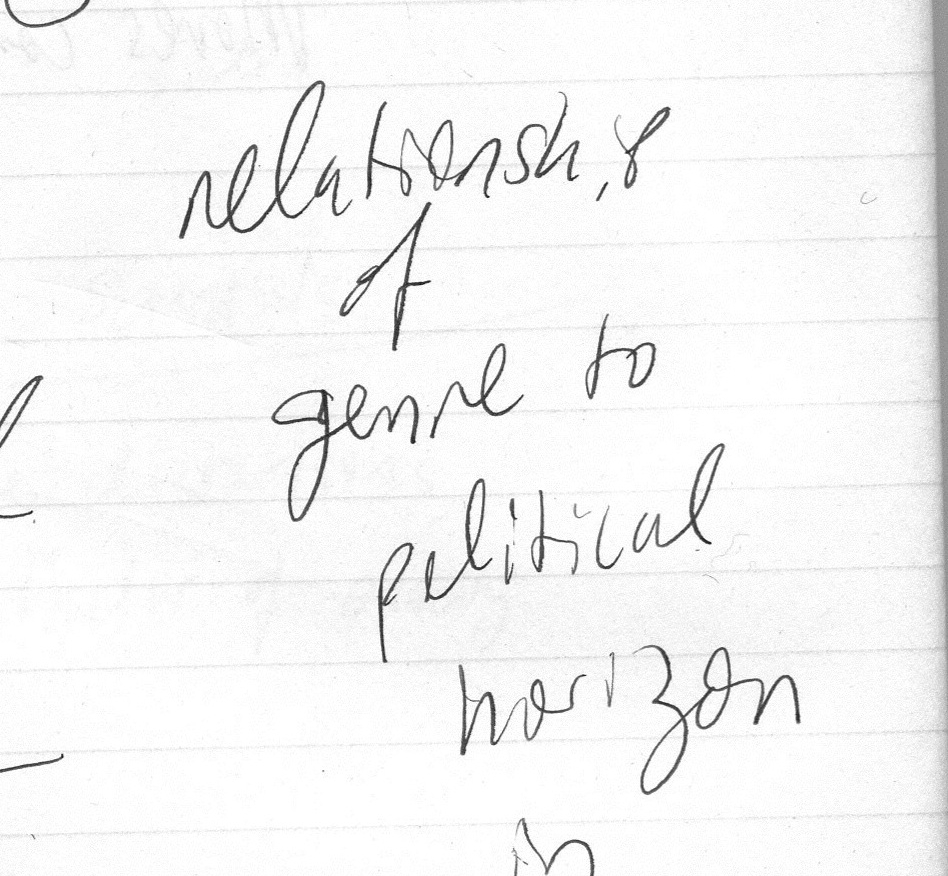 relationship
of
genre to
political
horizon
in